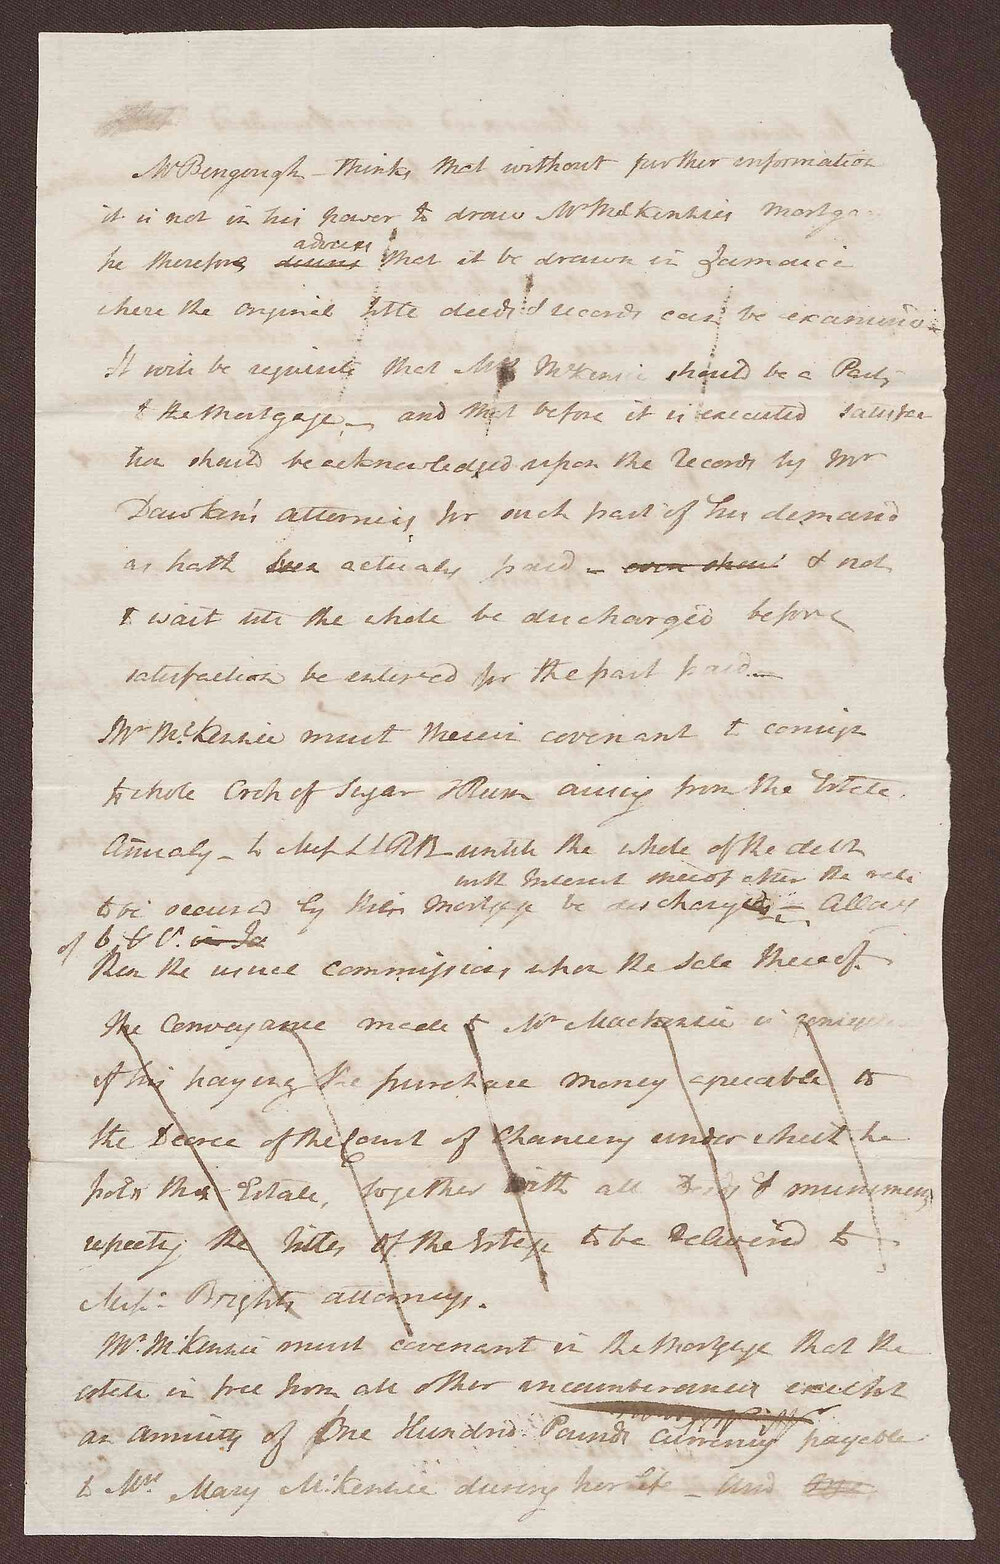 Mr Bengough - thinks that without further information
it is not in his power to draw Mr McKenzies Mortga
advises
he therefore desires that it be drawn in Jamaica
where the original title deeds & records can be examined
It will be requisite that Mrs McKenzie should be a Party
to the Mortgage - and that before it is executed satisfac
tion should be acknowledged upon the Records by Mr
Dawkins attorneys for such part of his demand
as hath been actually paid - & not
to wait till the whole be discharged before
satisfaction be entered for the part paid -
Mr McKenzie must therein covenant to consign
whole Crop of Sugar & Rum arising from the Estate
Annualy - to Mess LL & RB until the whole of the debt
with Interest thereof after the rate
to be secured by this Mortgage be discharged - Allowg
of 6 P Ct. in Ja
them the usual commissions upon the Sale thereof.
The Conveyance made to Mr Mackenzie in
of his paying the purchase money agreeable to
the Decree of the Court of Chancery under which he
holds the Estate, together with all Deeds & muniments
respecting the titles of the Estate to be delivered to
Messrs Brights attorneys.
Mr McKenzie must covenant in the Mortgage that the
estate is free from all other incumberances except
an annuity of One Hundred Pounds Currency payable
to Mrs Mary McKenzie during her life - And